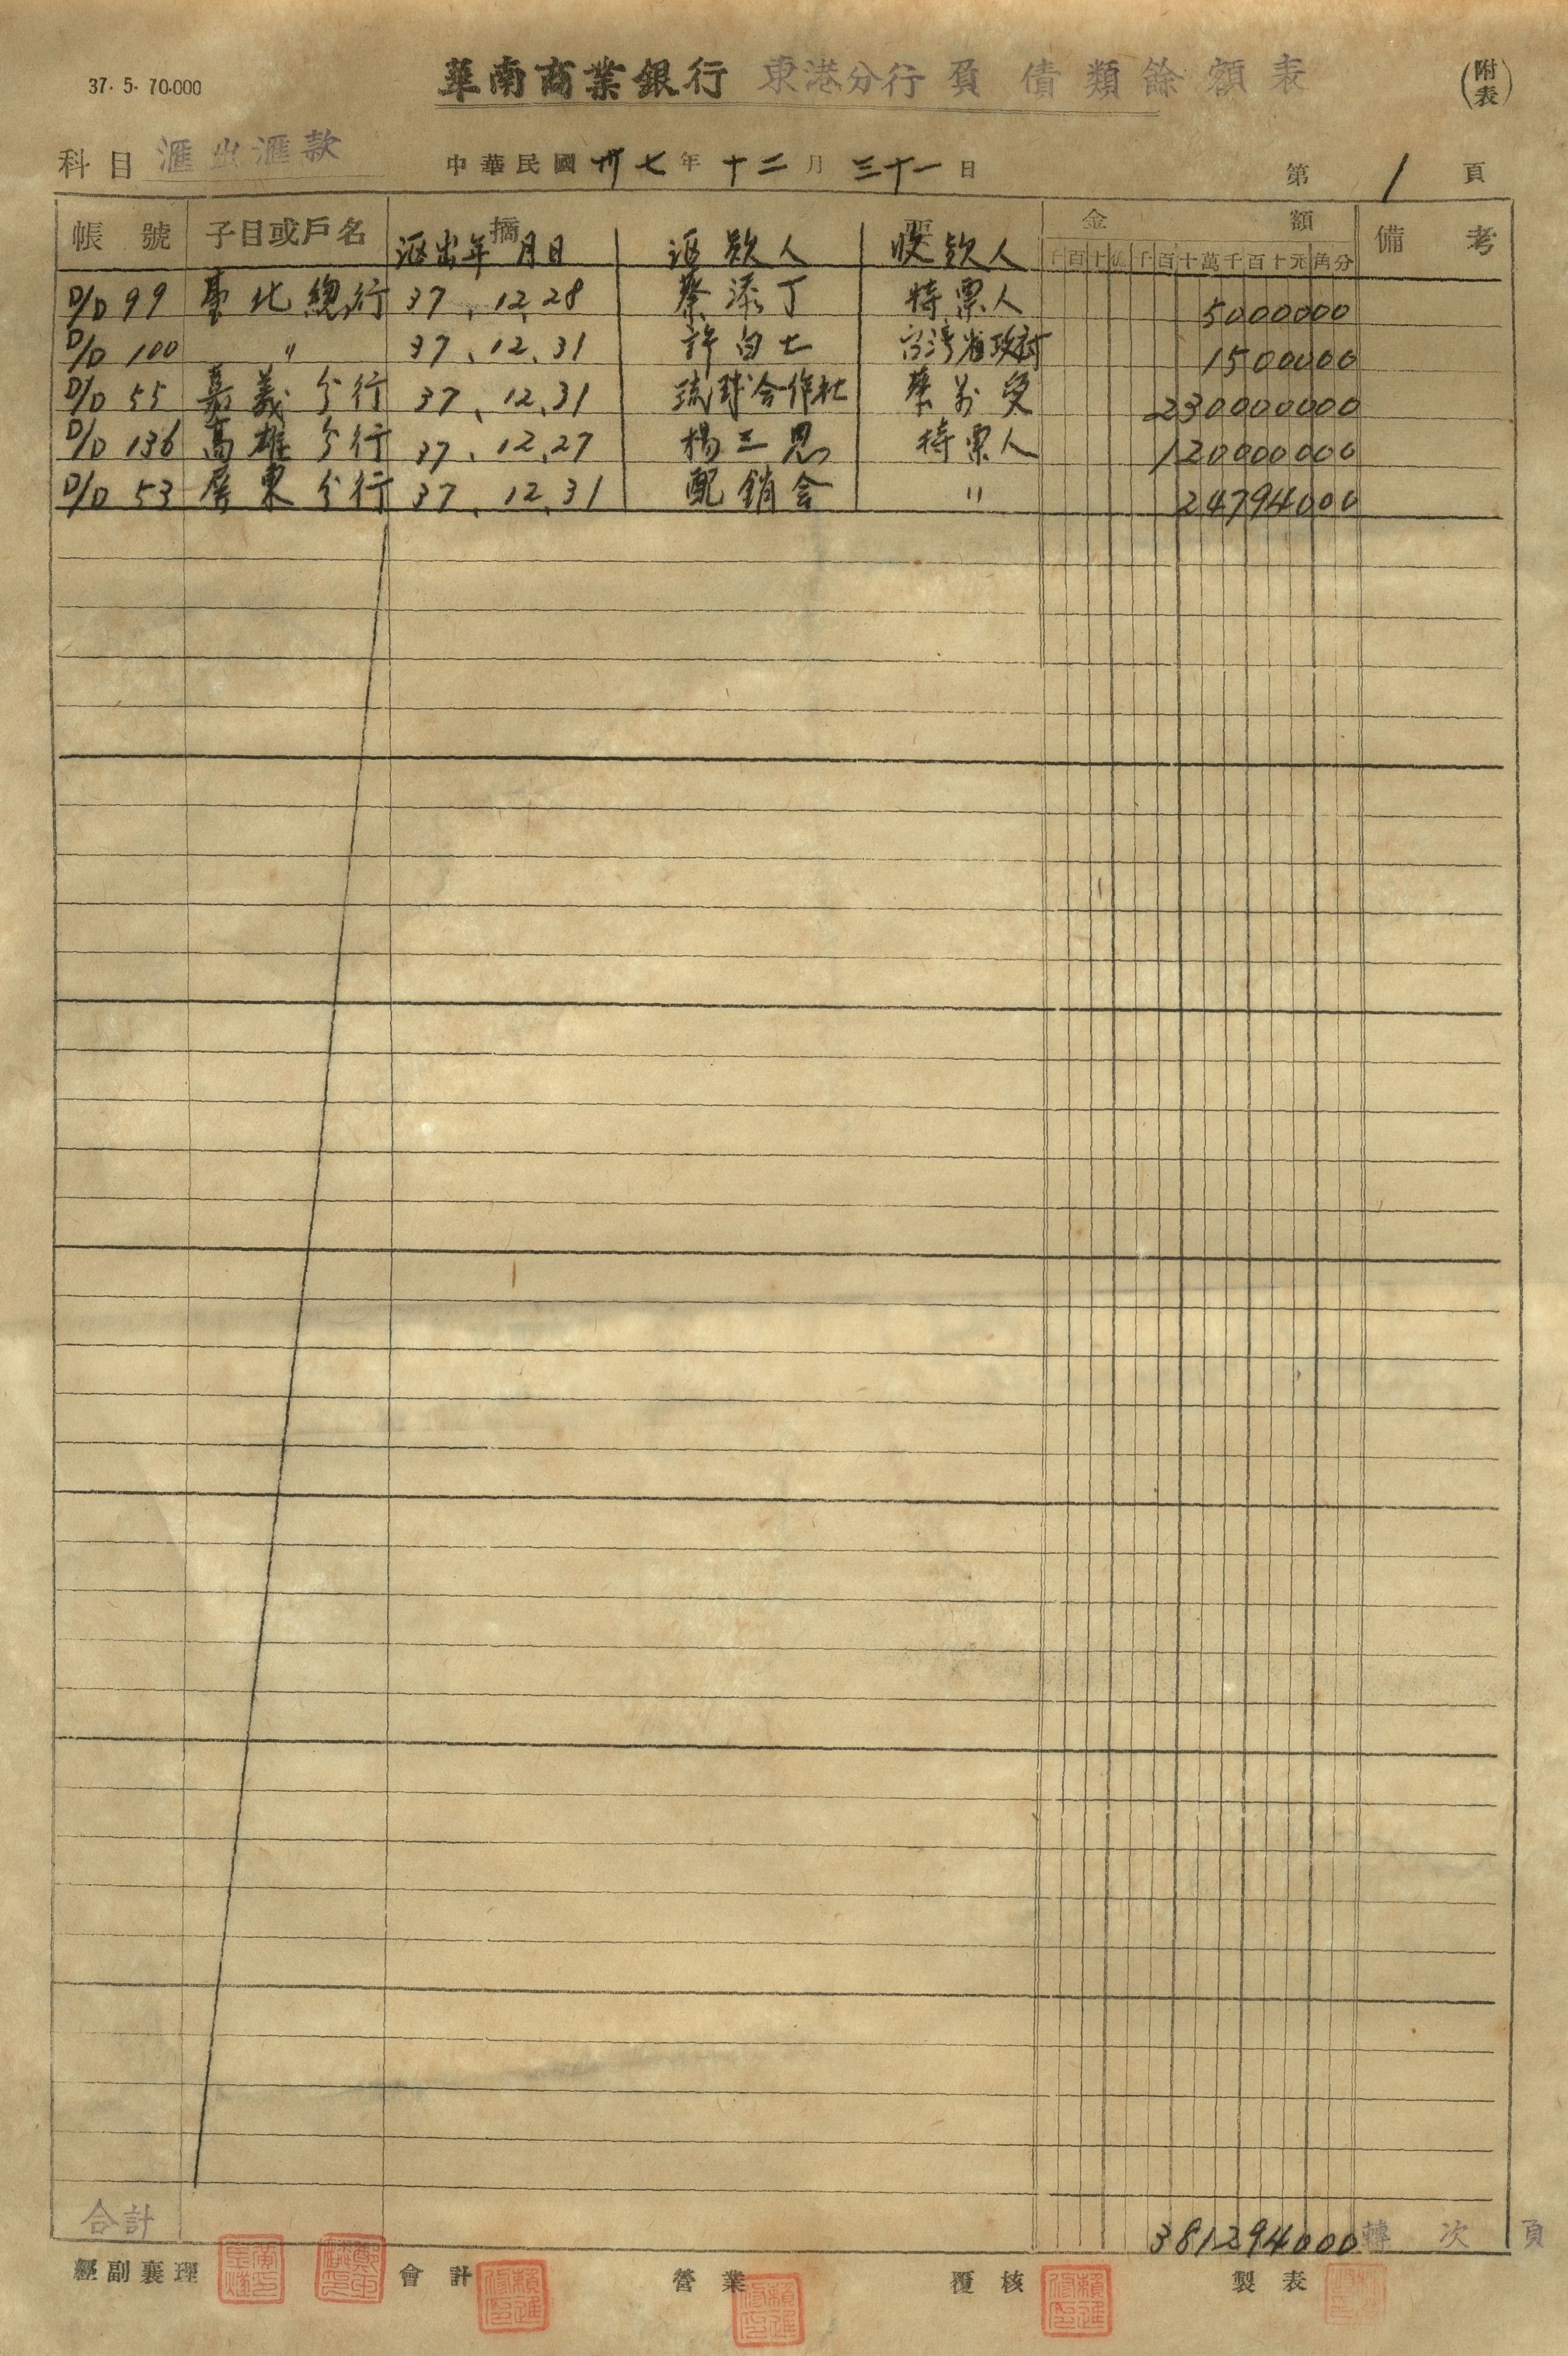 37. 5. 70.000
華南商業銀行 東港分行 負債類餘額表 (附表)
科目 滙出滙款 中華民國卅七年十二月三十一日 第 1 頁
帳號 子目或戶名 摘要 金額 備考
滙出年月日 滙款人 收款人 千百十億千百十萬千百十元角分
D/D 99 臺北總行 37、12、28 蔡添丁 持票人 5000000
D/D 100 〃 37、12、31 許白七 台湾省政府 1500000
D/D 55 嘉義分行 37、12、31 琉球合作社 蔡萬受 230000000
D/D 136 高雄分行 37、12、27 楊三恩 持票人 120000000
D/D 53 屏東分行 37、12、31 配銷会 〃 24794000
合計 381294000 轉次頁
經副襄理 會計 營業 覆核 製表